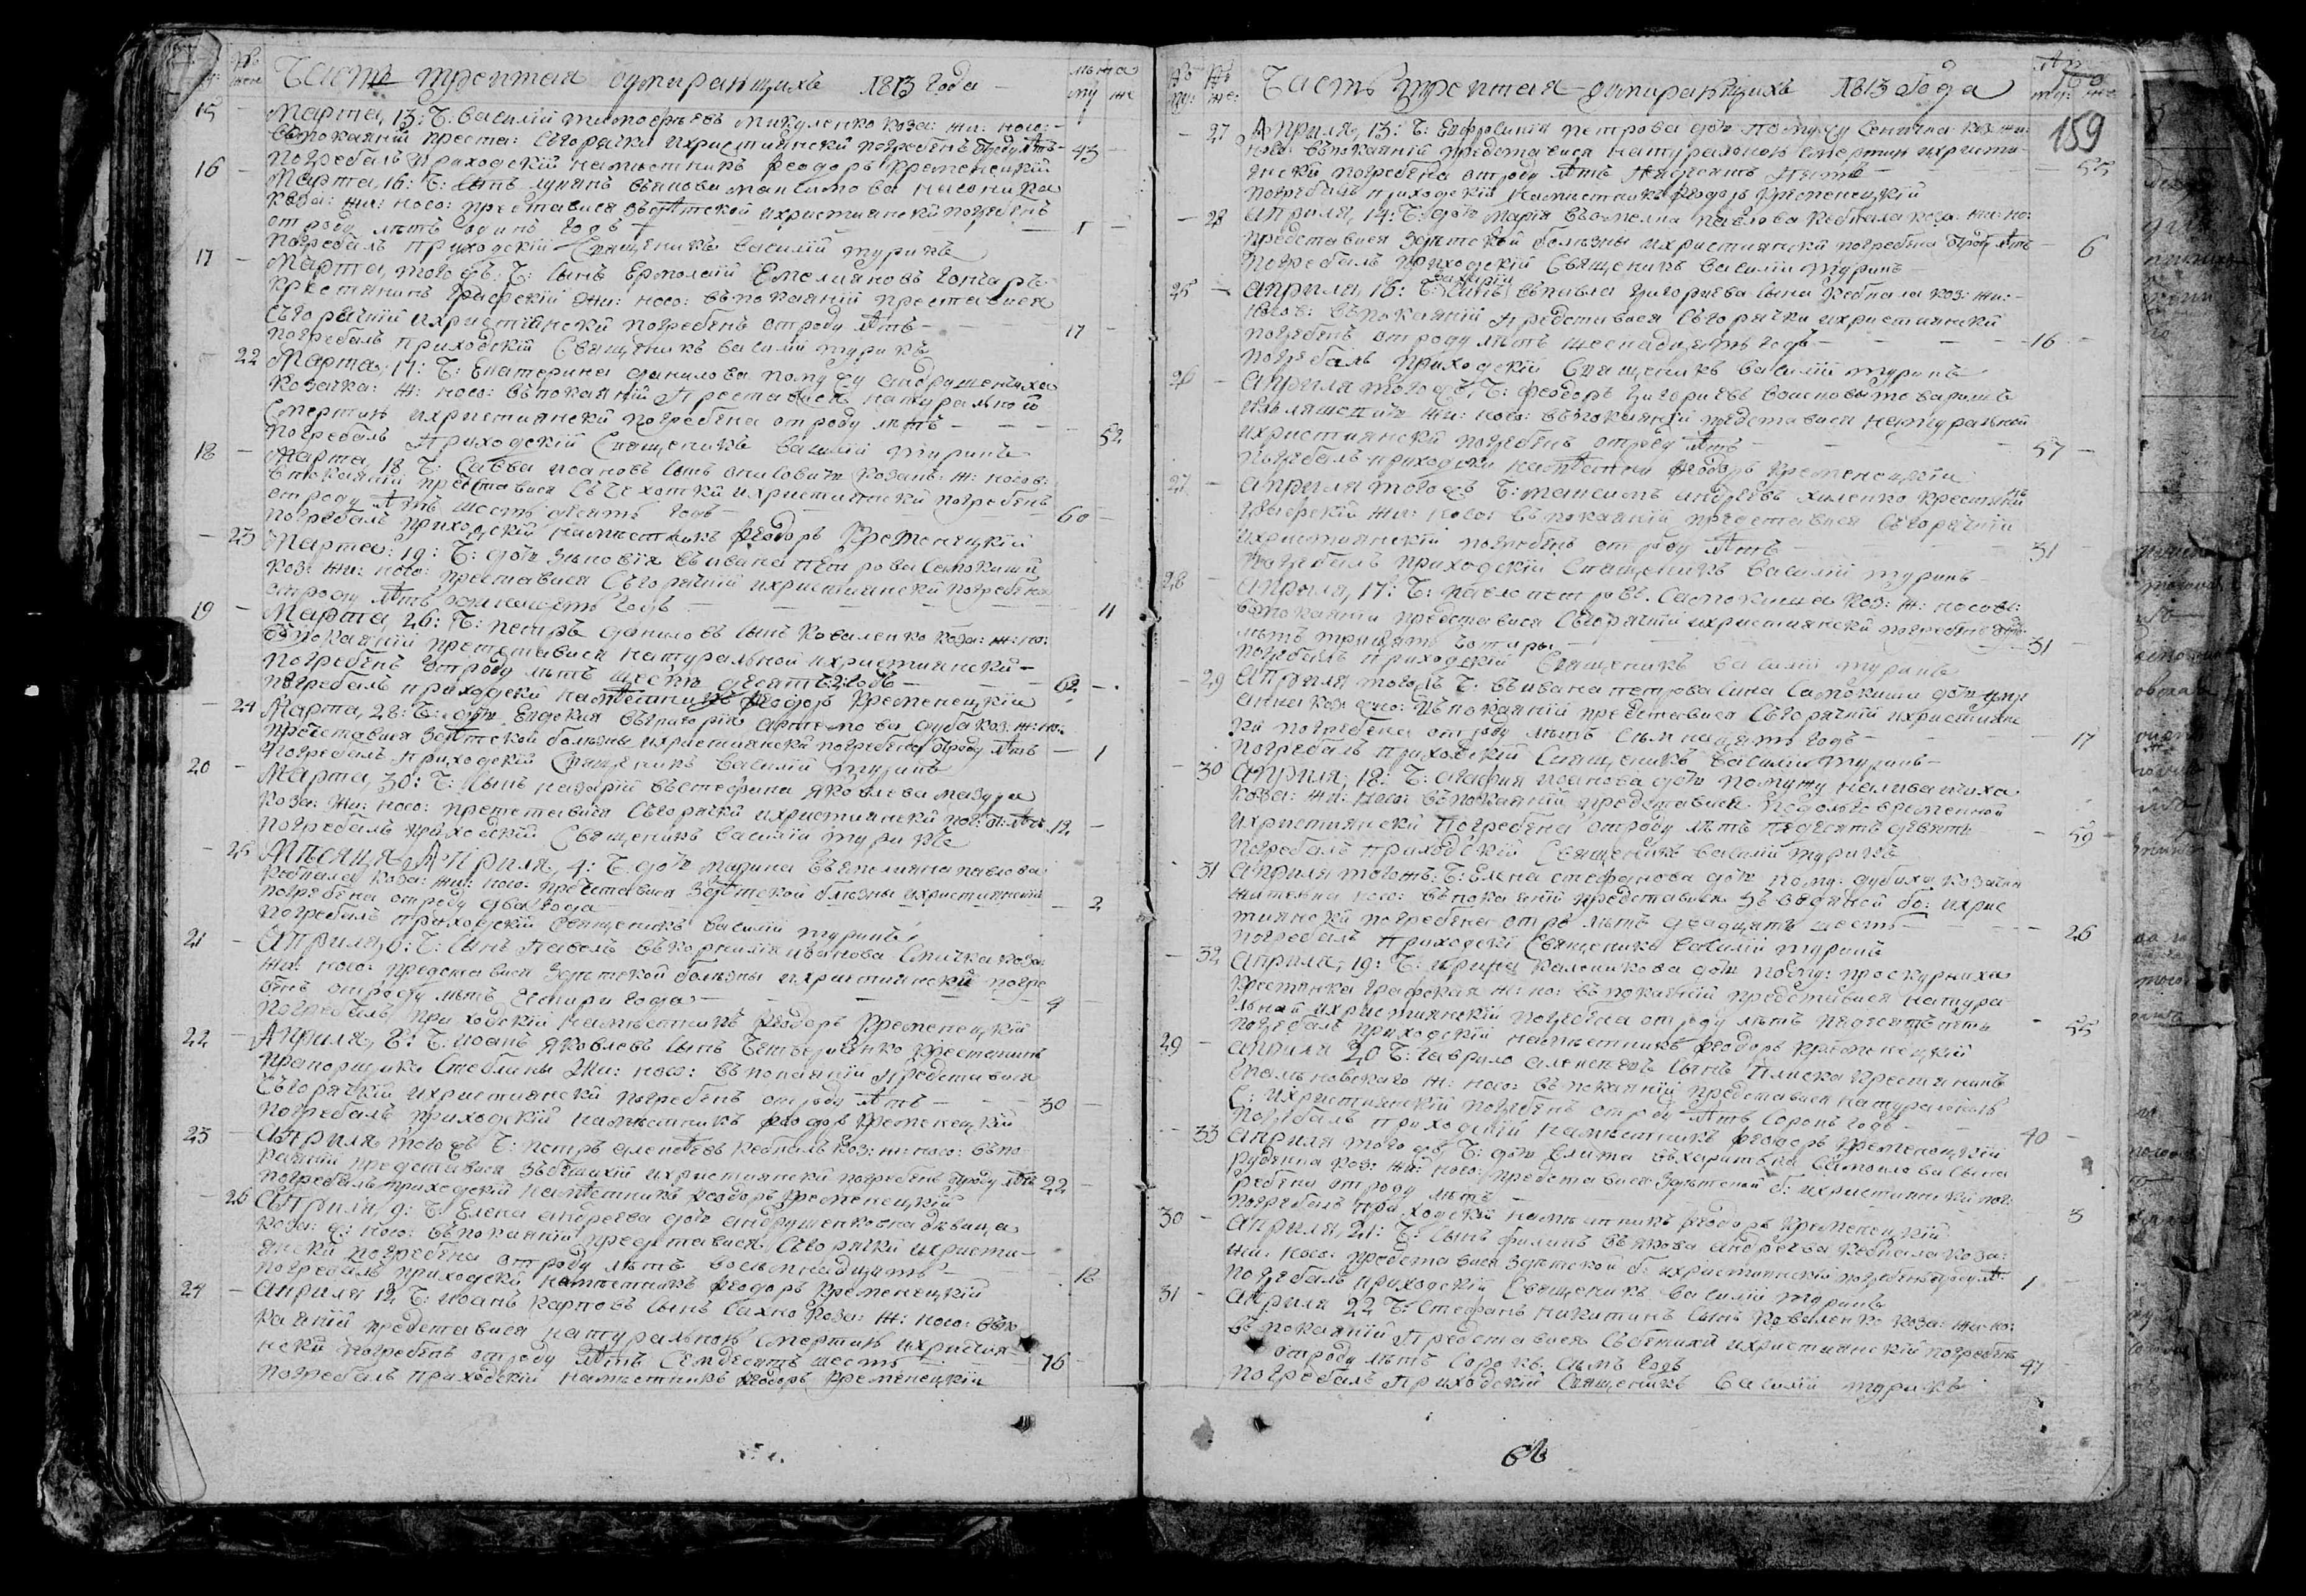 Часть третая о умиравщихъ 1813 года
15 Марта, 13: Ч: василий тимофѣевъ Микуленко коза: жи: носо:
въпокаянии преста: съгорачки ихристиянски погребенъ 43
погребалъ приходский намѣстникъ Феодоръ Кременецкий
16 Марта, 16: Ч: сынъ
коза: жи: носо: преставися зъдѣтской ихристиянски погребенъ
отроду лѣтъ одинъ годъ 1
погребалъ приходский Священикъ василий туринъ
17 Марта, тогожъ: Ч: сынъ Ермолаий Емелияновъ гончаръ
крестянинъ графский жи: носо: въпокаянии преставися
съгорячки ихристиянски погребенъ отроду лѣтъ 17
погребалъ приходский Священикъ василий туринъ
22 Марта, 17: Ч: Екатерина данилова помужу андрущенчиха
козачка: ж: носо: въпокаяний преставися натуральной
смертию ихристиянски погребена отроду лѣтъ 52
погребалъ приходский Священикъ василий туринъ
18 Марта, 18 Ч: Савва иоановъ сынъ козакъ: ж: носов:
въпокаяний преставися ихристиянски погребенъ
отроду лѣтъ шестьдесятъ годъ 60
погребалъ приходский намѣстникъ Феодоръ Кременецкий
23 Марта: 19: Ч: дочь зѣновия въивана петрова Самокиши
коз: жи: носо: преставися съгорячки ихристиянски погребена
отроду лѣтъ годъ 11
19 Марта, 26: Ч: петръ даниловъ сынъ Коваленко коза: ж: но:
въпокаяний преставися натуральной ихристиянски
погребенъ отроду лѣтъ шестьдесятъ 2 годъ 62
погребалъ приходски намѣстникъ Феодоръ Кременецкий
24 Марта, 28: Ч: дочь Евдокия въгригория артемова дуба коз: ж: но:
преставися здѣтской болѣзны ихристиянски погребена отроду лѣтъ 1
погребалъ приходский Священикъ василий туринъ
20 Марта, 30: Ч: сынъ назарий въстефана яковлева мазури
коза: жи: носо: преставися съгорячки ихристиянски пог: о: лѣтъ 12
погребалъ приходский Священикъ василий туринъ
25 Мѣсяця Априля, 4: Ч дочь въемилияна павлова
кобпала коза: жи: носо: преставися здѣтской болѣзны ихристиянский
погребена отроду два года 2
погребалъ приходский священикъ василий туринъ
21 Априля, 6: Ч: сынъ павелъ въкорнилия иванова Смичка коза:
жи: носо: представися здѣтской болѣзны ихристиянски погре
бенъ отроду лѣтъ чотири года 4
погребалъ приходский намѣстникъ Феодоръ Кременецкий
22 Априля, 8: Ч: иоанъ яковлевъ сынъ крестянинъ
прапорщика Стеблины жи: носо: въпокаяний представися
съгорячкий ихристиянски погребенъ отроду лѣтъ 30
погребалъ приходский намѣстникъ феодоръ Кременецкий
23 Априля тогожъ Ч: петръ алексѣевъ кобпалъ коз: ж: носо: въпо
каяний представися ихристиянски погребенъ отроду лѣтъ 22
погребалъ приходский намѣстникъ феодоръ Кременецкий
26 Априля, 9: Ч: Елена андреева дочь андрущенковна дѣвица
коза: ж: носо: въпокаянии представися съгорячки ихристи
янски погребена отроду лѣтъ восьмнадцать 18
погребалъ приходски намѣстникъ феодоръ Кременецкий
24 Априля 12 Ч: иоанъ карповъ сынъ Сахно коза: ж: носо: въпо
каяний представися натуральною смертию ихристия
нски погребенъ отроду лѣтъ Семдесятъ шесть 76
погребалъ приходский намѣстникъ феодоръ Кременецкий
Часть третая о умиравщихъ 1813 года
159
27 Априля, 13: Ч: Евфросиния петрова дочь помужу коз: жи:
носо: въпокаяниѣ представися натуральною смертию ихристи
янски погребена отроду лѣтъ пядесятъ пять 55
погребалъ приходский намѣстникъ феодоръ Кременецкий
28 Априля, 14: Ч: дочь мария въемелиа павлова кобпала коза: жи: но:
представися здѣтской болѣзны ихристиянски погребена отроду лѣтъ 6
погребалъ приходский Священикъ василий туринъ
25 Априля, 15: Ч: сынъ въпавла григориева сина кобпала коз: жи:
носов: въпокаяний представися съгорячки ихристиянски
погребенъ отроду лѣтъ шеснадцеть годъ 16
погребалъ приходский Священикъ василий туринъ
26 Априля тогожъ Ч: феодоръ григориевъ
жи: носо: въпокаяний представися натуральной
ихристиянски погребенъ отроду лѣтъ 57
погребалъ приходски намѣстникъ феодоръ Кременецкий
27 Априля тогожъ Ч: максимъ андрѣевъ хиленко крестянинъ
графский жи: носо: въпокаяний представися съгорячки
ихристиянский погребенъ отроду лѣтъ 31
погребалъ приходский Священикъ василий туринъ
28 Априля, 17: Ч: павло петровъ Самокиша коз: ж: носов:
въпокаянии представися съгорячки ихристиянски погребенъ отро
лѣтъ трицять чотыры 31
погребалъ приходский Священикъ василий туринъ
29 Априля тогожъ Ч: въивана петрова сина самокиши дочь
анна коз: носо: въпокаяний представися съгорячкий ихристиян
ски погребена отроду лѣтъ семнацять годъ 17
погребалъ приходский Священикъ василий туринъ
30 Априля, 18: Ч: агафия иоанова дочь помужу наливайчиха
коза: жи: носо: въпокаяний представися подолговременной
ихристиянски погребена отроду лѣтъ пядесятъ девять 59
погребалъ приходский Священикъ василий туринъ
31 Априля тогожъ: Ч: Елена стефанова дочь пому: дубиха козачка
носо: въпокаяний представися бо: ихрис
тиянски погребена отро лѣтъ двадцять шесть 26
погребалъ приходски Священикъ василий туринъ
32 Априля, 19: Ч: ирина каленикова дочь пому: проскурниха
крестянка графская ж: но: въпокаяний представися натура
льной ихристиянский погребена отроду лѣтъ пядесятъ пять 55
погребалъ приходский намѣстникъ феодоръ Кременецкий
29 Априля 20 Ч: гаврило алексеевъ сынъ крестянинъ
ж: носо: въпокаяний представися натуральной
С: ихристиянский погребенъ отроду лѣтъ сорокъ годъ 40
погребалъ приходский намѣстникъ феодоръ Кременецкий
33 Априля тогожъ Ч: дочь въхаритона самоилова сына
коз: жи: носо: представися здѣтской б: ихристиянски пог
ребена отроду лѣтъ 3
погребалъ приходский намѣстникъ феодоръ Кременецкий
30 Априля, 21: Ч: сынъ филипъ въякова андреева кобпала коза:
жи: носо: представися здѣтской б: ихристиянский погребенъ отроду лѣ: 1
погребалъ приходский Священикъ василий туринъ
31 Априля 22 Ч: Стефанъ никитинъ сынъ Коваленко коза: жи: но:
въпокаяний представися ихристиянский погребенъ
отроду лѣтъ сорокъ семъ годъ 47
погребалъ приходский Священикъ василий туринъ